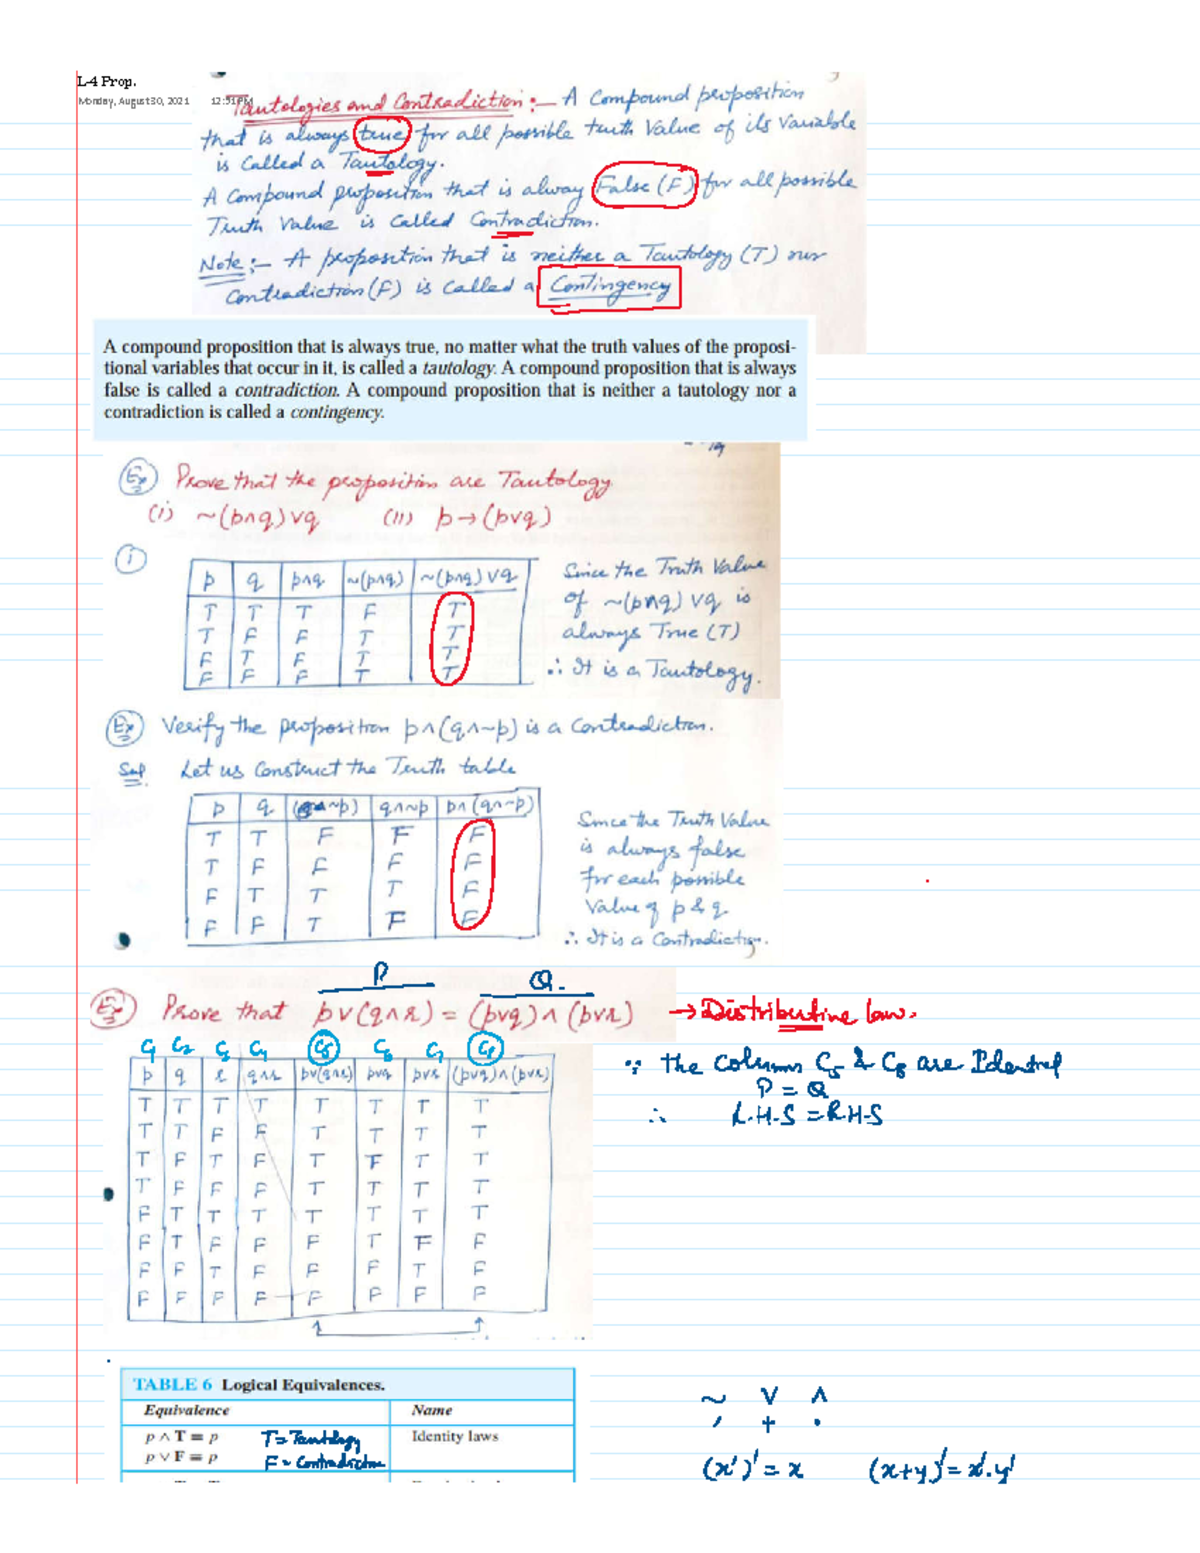 L-4 Prop.
Monday, August 30, 2021 12:51 PM
Tautologies and Contradiction :- A Compound proposition
that is always true for all possible truth Value of its Variable
is Called a Tautology.
A Compound proposition that is alway False (F) for all possible
Truth Value is Called Contradiction.
Note :- A proposition that is neither a Tautology (T) nor
Contradiction (F) is called a Contingency
A compound proposition that is always true, no matter what the truth values of the proposi-
tional variables that occur in it, is called a tautology. A compound proposition that is always
false is called a contradiction. A compound proposition that is neither a tautology nor a
contradiction is called a contingency.
Ex Prove that the proposition are Tautology
(i) ~(p∧q)∨q (ii) p→(p∨q)
(i)
p q p∧q ~(p∧q) ~(p∧q)∨q
T T T F T
T F F T T
F T F T T
F F F T T
Since the Truth Value
of ~(p∧q)∨q is
always True (T)
∴ It is a Tautology.
Ex Verify the proposition p∧(q∧~p) is a Contradiction.
Sol Let us Construct the Truth table
p q (~p) q∧~p p∧(q∧~p)
T T F F F
T F F F F
F T T T F
F F T F F
Since the Truth Value
is always false
for each possible
Value of p & q
∴ It is a Contradiction.
P Q.
Ex Prove that p∨(q∧r) = (p∨q)∧(p∨r) → Distributive law.
C1 C2 C3 C4 C5 C6 C7 C8
p q r q∧r p∨(q∧r) p∨q p∨r (p∨q)∧(p∨r)
T T T T T T T T
T T F F T T T T
T F T F T F T T
T F F F T T T T
F T T T T T T T
F T F F F T F F
F F T F F F T F
F F F F F F F F
∵ the Columns C5 & C8 are Identical
P = Q
∴ L.H.S = R.H.S
TABLE 6 Logical Equivalences.
Equivalence Name
p ∧ T ≡ p T = Tautology Identity laws
p ∨ F ≡ p F = Contradiction
~ ∨ ∧
′ + .
(x′)′ = x (x+y)′ = x′.y′